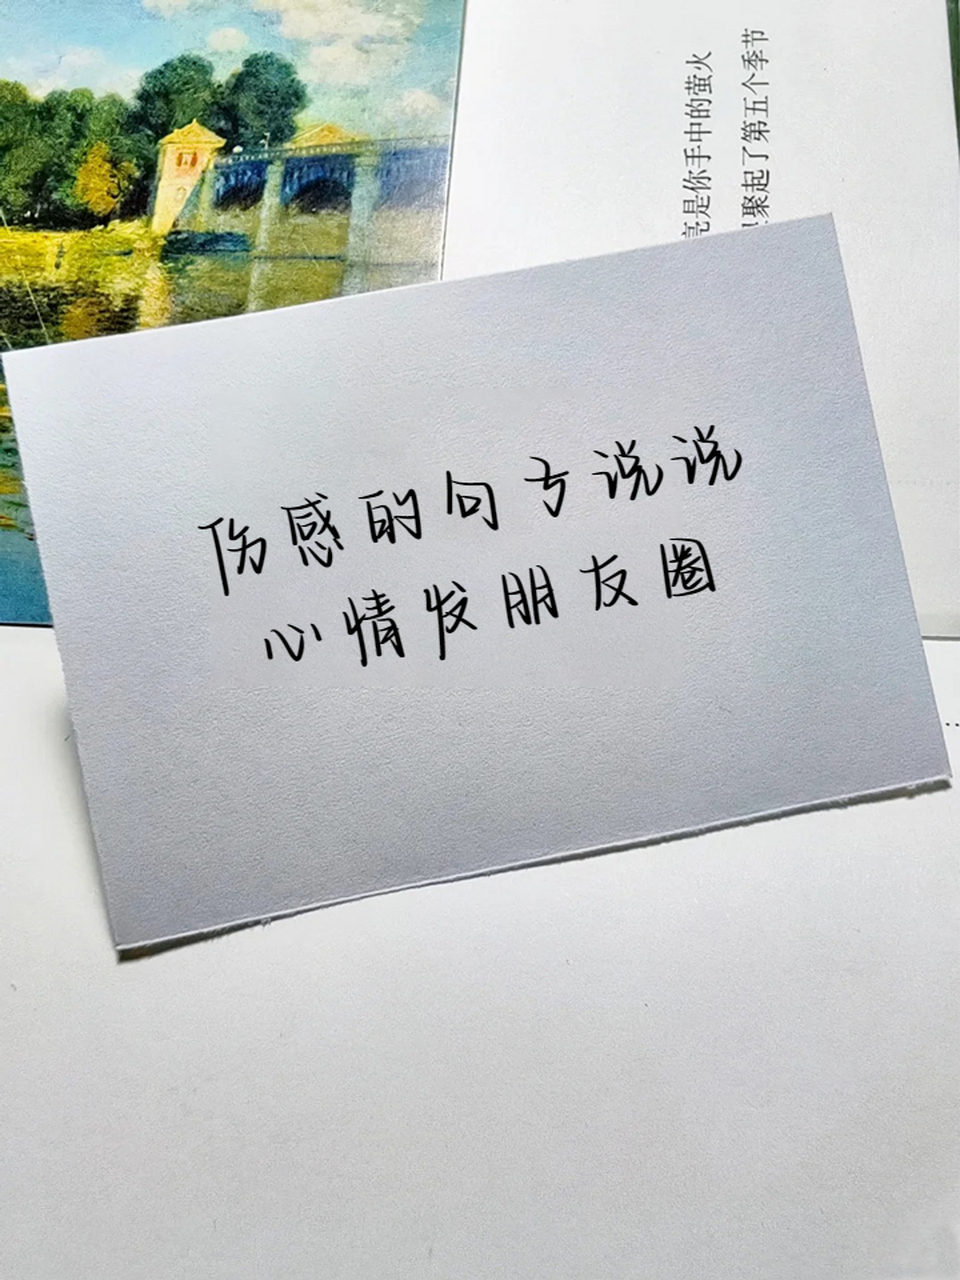 伤感的句子说说
心情发朋友圈
是你手中的萤火
聚起了第五个季节